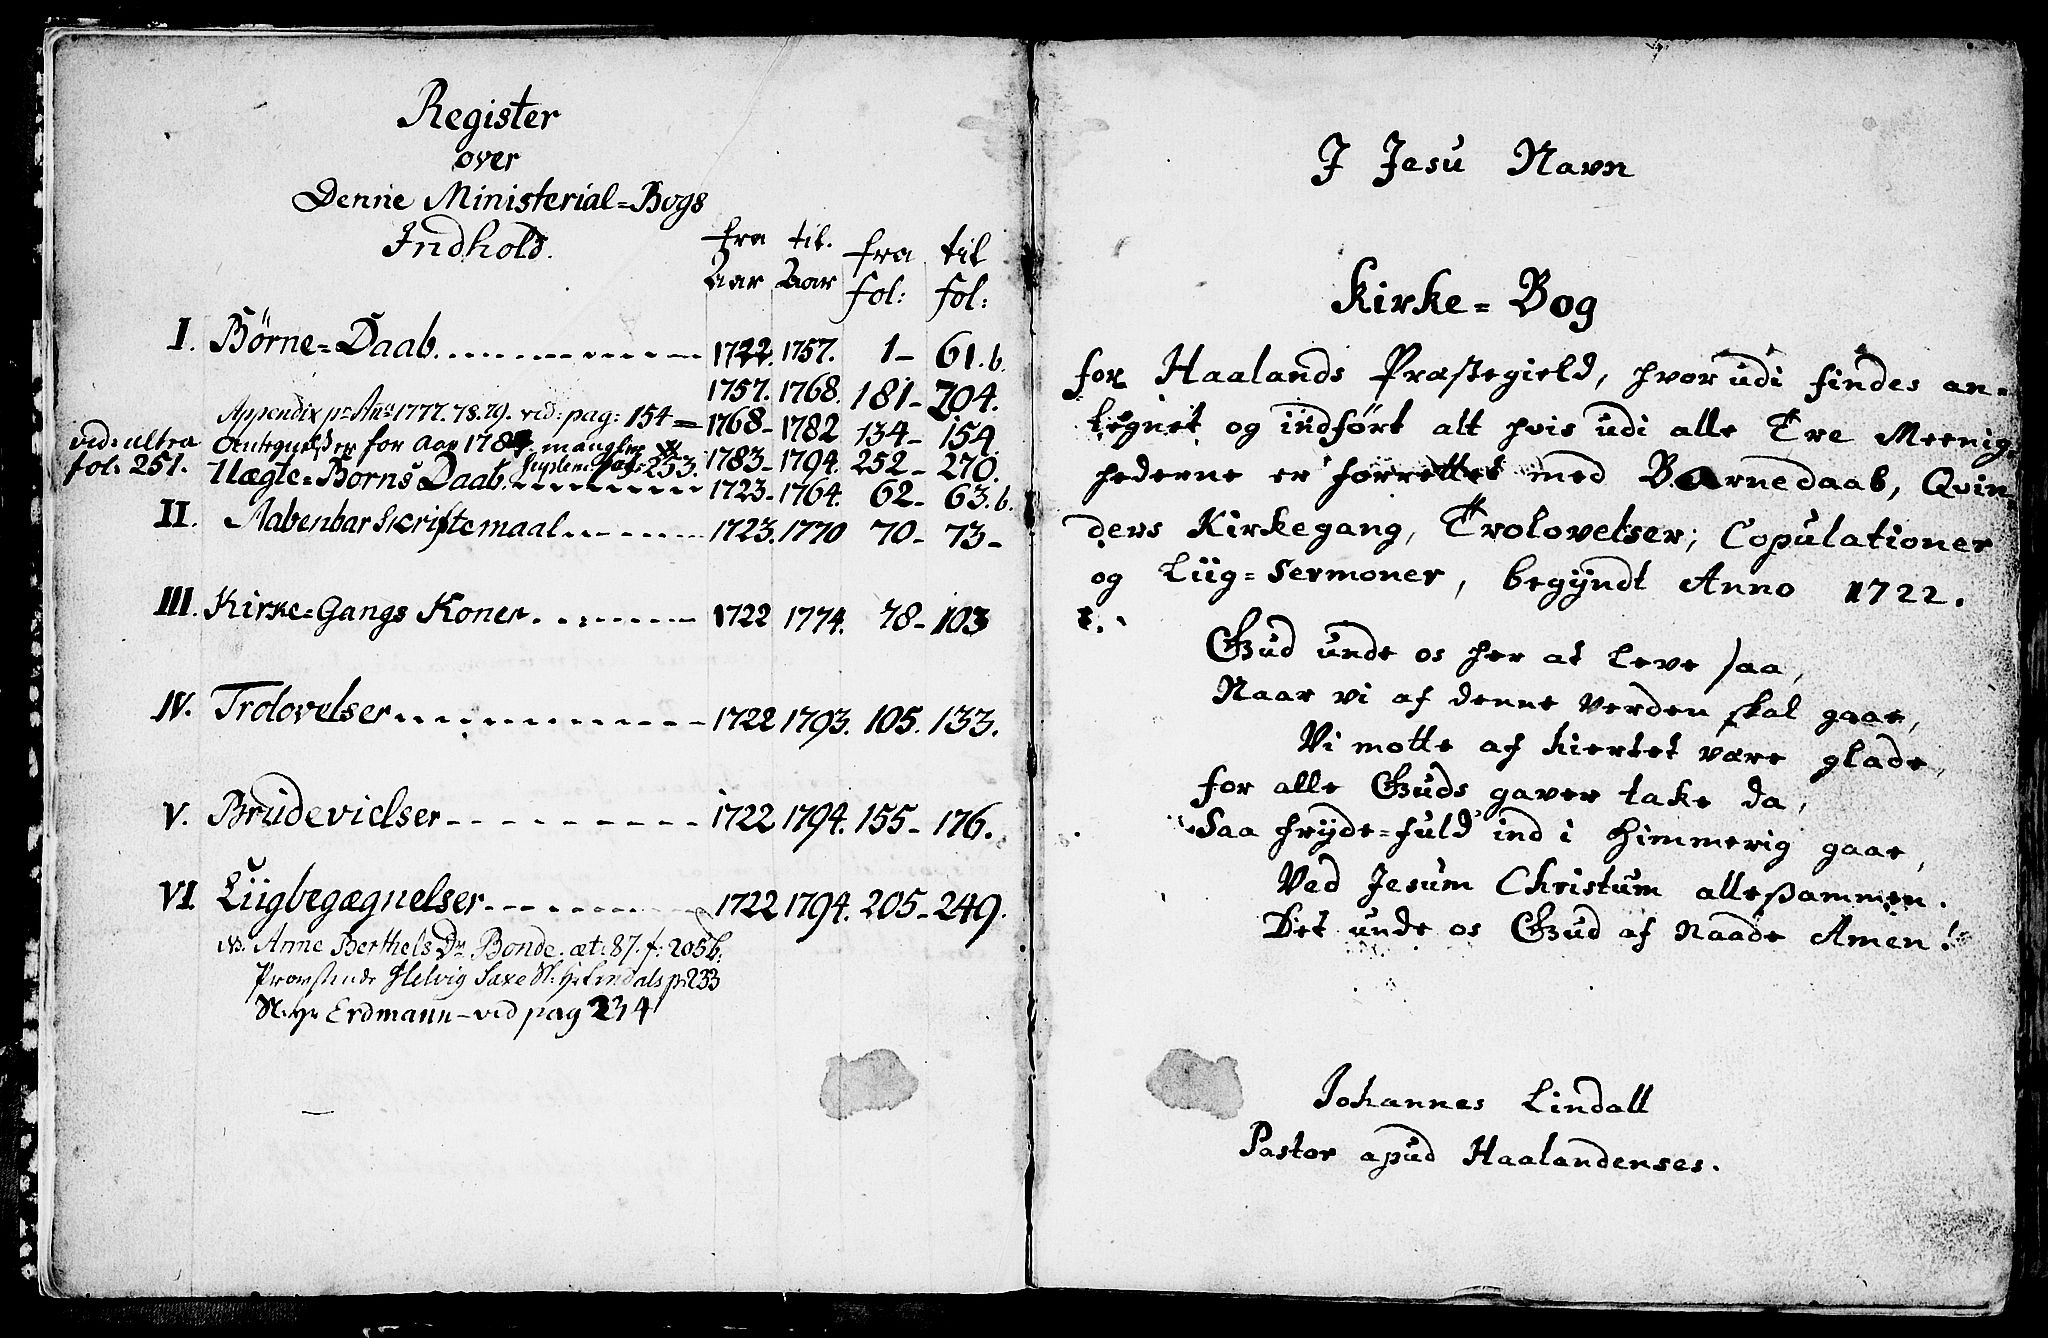 Register
over
Denne Ministerial=Bogs
Indhold.
fra Aar til. Aar fra fol: til fol:
I. Börne=Daab. 1722. 1757. 1– 61.b.
1757. 1768. 181– 204.
Appendix pr Ano 1777. 78. 79. vid: pag: 154 = 1768– 1782 134– 154.
vid: ultra fol: 251.
for Aar 1784 mangler 253. 1783– 1794. 252– 270.
Uægte=Børns Daab. 1723– 1764. 62– 63.b.
II. Aabenbar Skriftemaal 1723. 1770 70– 73–
III. Kirke=Gangs Koner. 1722 1774. 78– 103
IV. Trolovelser 1722 1793. 105. 133.
V. Brudevielser 1722 1794. 155– 176.
VI. Liigbegægnelser. 1722 1794. 205– 249.
NB. Anne Berthels Dr Bonde. æt: 87. f: 205b.
Provstinde Helvig Saxe Sl. Hr Lindals p: 233
Sl. Hr Erdmann – vid pag 234
I Jesu Navn
Kirke= Bog
for Haalands Præstegield, hvorudi findes an=
tegnet og indført alt hvis udi alle Tre Meenig
hederne er forrettet med Barnedaab, Qvin
ders Kirkegang, Trolovelser, Copulationer
og Liig=Sermoner, begyndt Anno 1722.
Gud unde os her at leve saa,
Naar vi af denne verden skal gaae,
Vi motte af hiertet være glade,
for alle Guds gaver take da,
Saa fryde=fuld ind i Himmerig gaae,
Ved Jesum Christum allesammen.
Det unde os Gud af Naade Amen!
Johannes Lindall
Pastor apud Haalandenses.